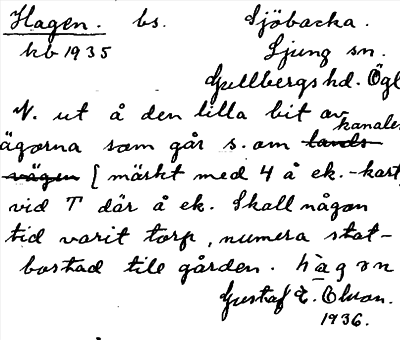 Hagen. bs. Sjöbacka.
kb 1935 Ljung sn.
Gullbergs hd. Ögl
N. ut å den lilla bit av
kanalen
ägorna som går s. om lands-
vägen [märkt med 4 å ek.-kart
vid T där å ek. Skall någon
tid varit torp, numera stat-
bostad till gården. hagen
Gustaf E. Olson.
1936.